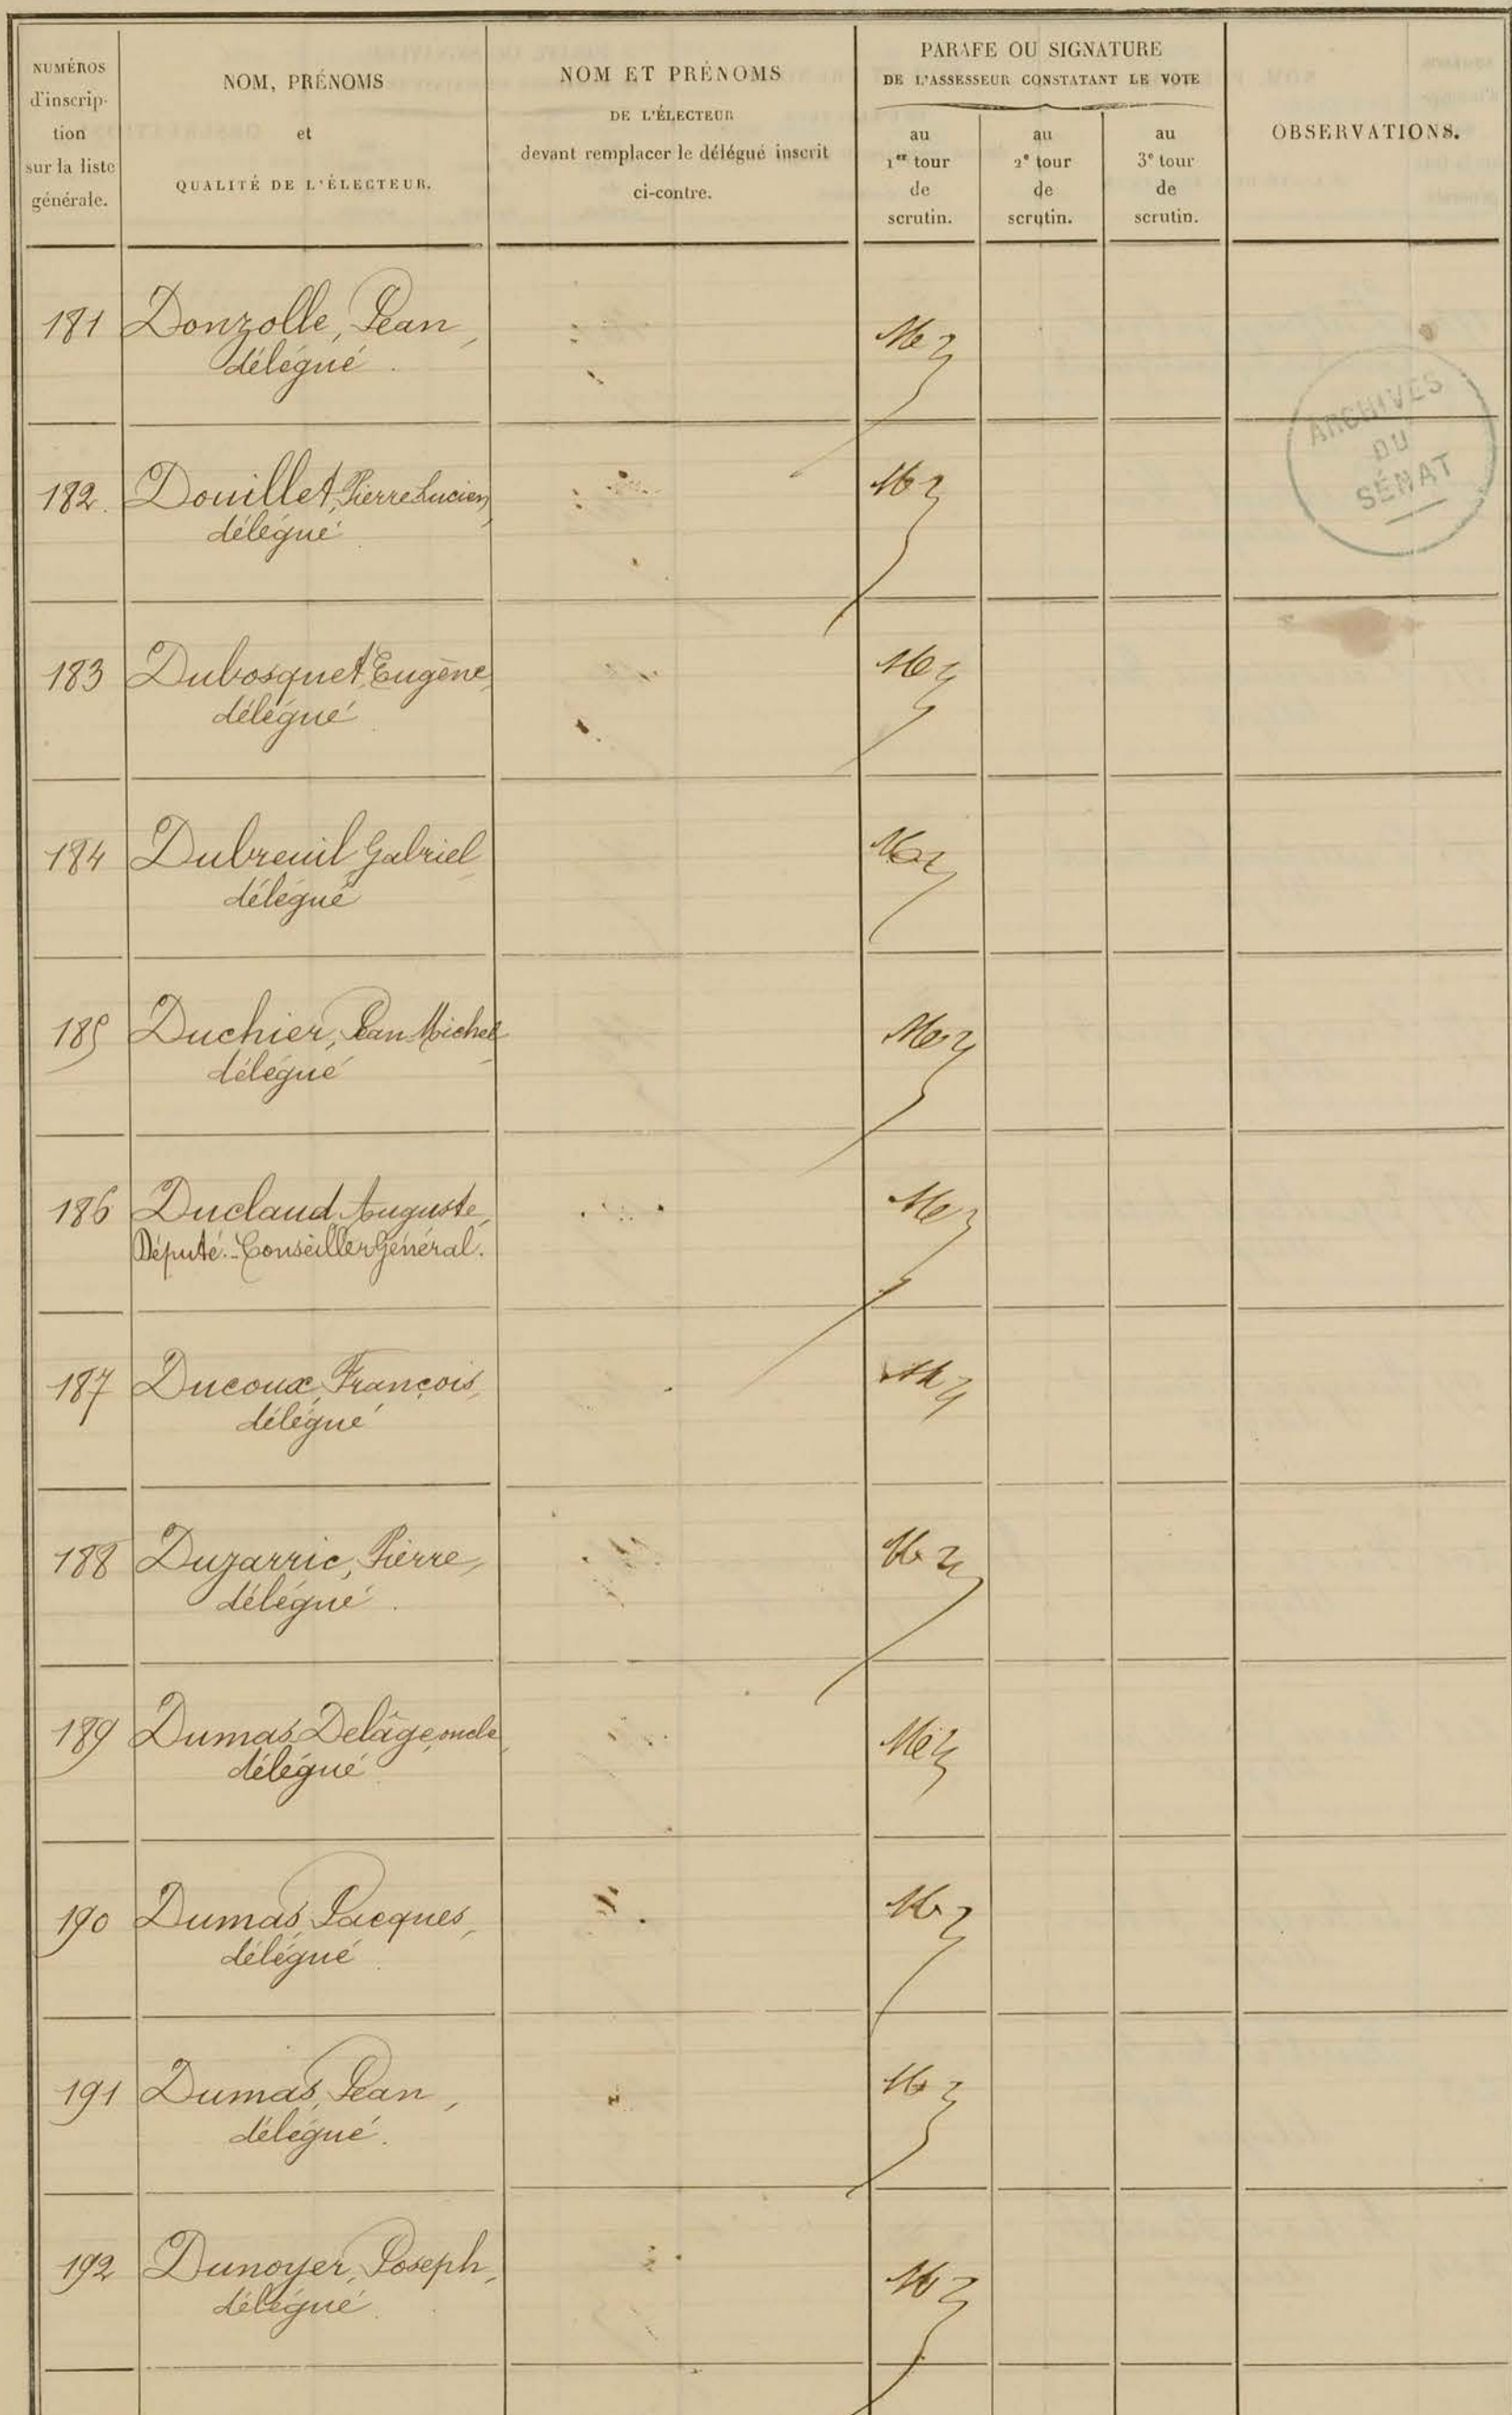 NUMÉROS
d'inscrip-
tion
sur la liste
générale.
NOM, PRÉNOMS
et
QUALITÉ DE L'ÉLECTEUR.
NOM ET PRÉNOMS
DE L'ÉLECTEUR
devant remplacer le délégué inscrit
ci-contre.
PARAFE OU SIGNATURE
DE L'ASSESSEUR CONSTATANT LE VOTE
au
1er tour
de
scrutin.
au
2e tour
de
scrutin.
au
3e tour
de
scrutin.
OBSERVATIONS.
181 Donzolle, Jean,
délégué.
ARCHIVES
DU
SÉNAT
182. Douillet, Pierre Lucien,
délégué
183 Dubosquet, Eugène,
délégué
184 Dubreuil, Gabriel,
délégué
185 Duchier, Jean Michel,
délégué
186 Duclaud, Auguste,
Député.-Conseiller Général.
187 Ducoux, François,
délégué
188 Dujarric, Pierre,
délégué.
189 Dumas Delâge, oncle,
délégué
190 Dumas, Jacques,
délégué
191 Dumas, Jean,
délégué.
192 Dunoyer, Joseph,
délégué.